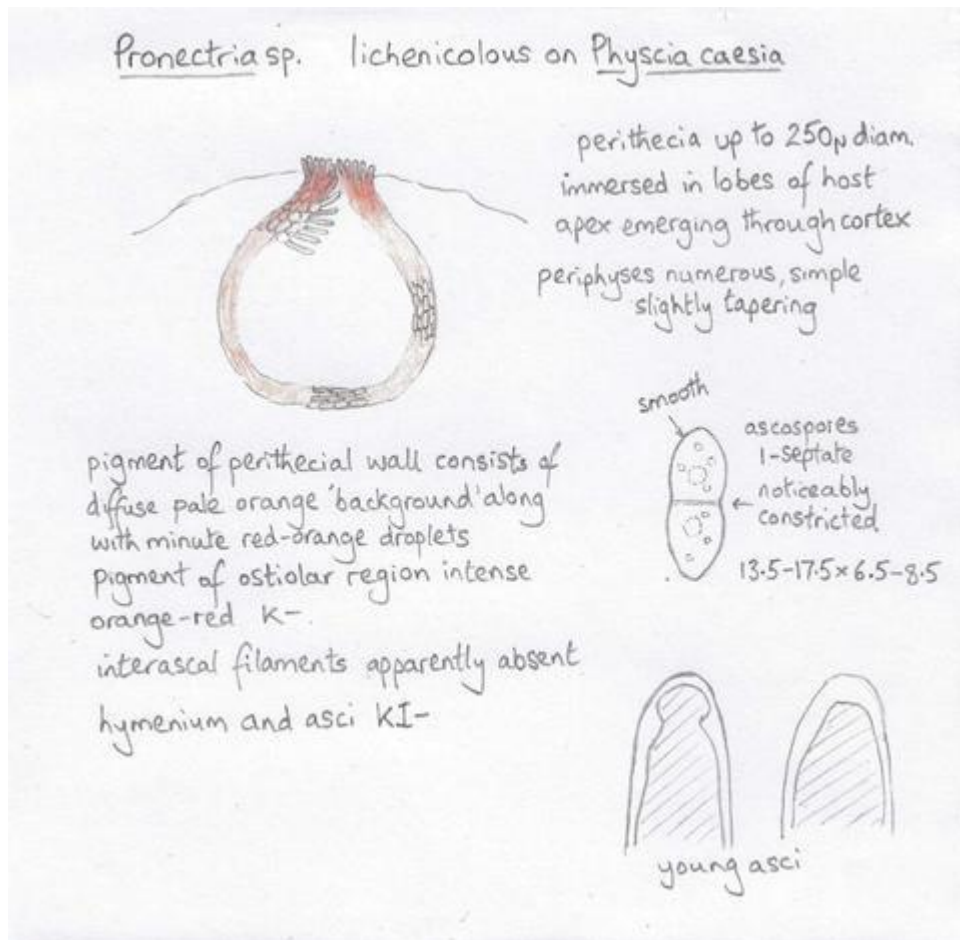 Pronectria sp. lichenicolous on Physcia caesia
perithecia up to 250µ diam.
immersed in lobes of host
apex emerging through cortex
periphyses numerous, simple
slightly tapering
smooth
ascospores
1-septate
noticeably
constricted
13.5-17.5 × 6.5-8.5
pigment of perithecial wall consists of
diffuse pale orange 'background' along
with minute red-orange droplets
pigment of ostiolar region intense
orange-red K-.
interascal filaments apparently absent
hymenium and asci KI-
young asci